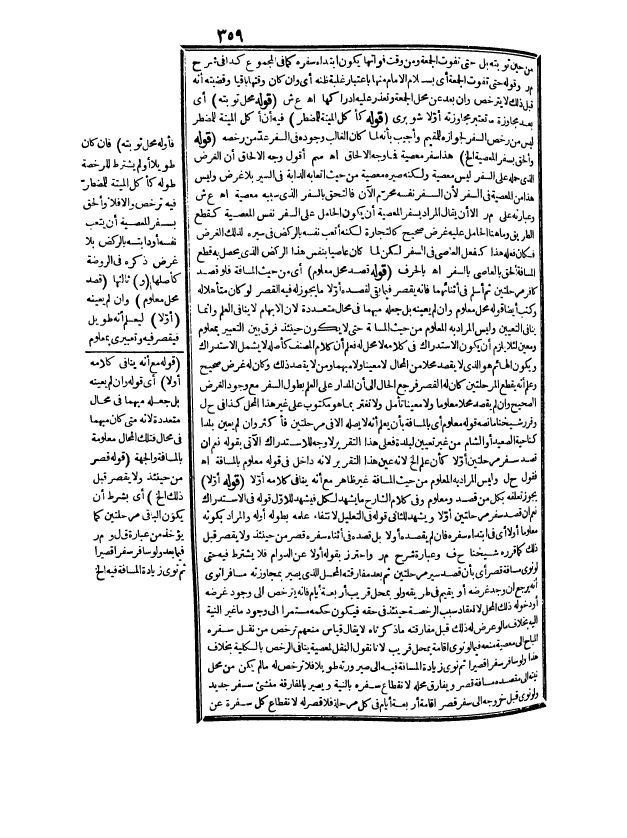 ٣٥٩
من حين توبته بل حتى تفوت الجمعة ومن وقت فواتها يكون ابتداء سفره كما في المجموع كذا في شرح
م ر وقوله حتى تفوت الجمعة أي بسلام الامام منها باعتبار غلبة ظنه أي وان كان وقتها باقيا وقضيته أنه
قبل ذلك لا يترخص وان بعد عن محل الجمعة وتعذر عليه ادراكها اه ع ش (قوله محل توبته) أى
بعد مجاوزة ما تعتبر مجاوزته أولا شوبرى (قوله كأكل الميتة للمضطر) فيه أن أكل الميتة للمضطر
ليس من رخص السفر لجوازه للمقيم وأجيب بأنه لما كان الغالب وجوده في السفر عد من رخصه (قوله
وألحق بسفر المعصية الخ) هذا سفر معصية فما وجه الالحاق اه سم أقول وجه الالحاق أن الغرض
الذى حمله على السفر ليس معصية ولكنه صيره معصية من حيث اتعابه الدابة في السير بلا غرض وليس
هذا من المعصية في السفر لأن السفر نفسه محرم الآن فالتحق بالسفر الذى سببه معصية اه ع ش
وعبارته على م ر الا أن يقال المراد بسفر المعصية أن يكون الحامل على السفر نفس المعصية كقطع
الطريق وما هنا الحامل عليه غرض صحيح كالتجارة لكنه أتعب نفسه بالركض في سيره لذلك الغرض
فكان فعله هذا كفعل العاصى في السفر لكن لما كان عاصيا بنفس هذا الركض الذى يحصل به قطع
المسافة ألحق بالعاصى بالسفر اه بالحرف (قوله قصد محل معلوم) أى من حيث المسافة فلو قصد
كافر مرحلتين ثم أسلم في أثنائهما فانه يقصر فيما بقى لقصده أولا ما يجوز له فيه القصر لو كان متأهلا له
وكتب أيضا قوله محل معلوم وان لم يعينه بل جعله مبهما في محال متعددة لان الابهام لا ينافى العلم وانما
ينافى التعيين وليس المراد به المعلوم من حيث المسافة حتى لا يكون حينئذ فرق بين التعبير بمعلوم
ومعين لئلا يلزم أن يكون الاستدراك في كلامه لا محل له فعلم أن كلام المصنف كأصله لا يشمل الاستدراك
ويكون الهائم هو الذى لا يقصد محلا من المحال لا معينا ولا مبهما ومن لا يقصد ذلك وكان له غرض صحيح
وعلم أنه يقطع المرحلتين كان له القصر فرجع الحال الى أن المدار على العلم بطول السفر مع وجود الغرض
الصحيح وان لم يقصد محلا معلوما ولا معينا تأمل ولا تغتر بما هو مكتوب على غير هذا المحل كذا في ح ل
وقرر شيخنا ما نصه قوله معلوم أى بالمسافة بأن يعلم أنه لا يصله الا في مرحلتين فأكثر وان لم يعين بلدا
كناحية الصعيد أو الشام من غير تعيين لبلدة فعلى هذا التقرير لا وجه للاستدراك الآتى بقوله نعم ان
قصد سفر مرحلتين أولا كأن علم الخ لانه عين هذا التقرير لانه داخل في قوله معلوم بالمسافة اه
فقول ح ل وليس المراد به المعلوم من حيث المسافة غير ظاهر مع أنه ينافى كلامه أولا (قوله أولا)
يجوز تعلقه بكل من قصد ومعلوم وفي كلام الشارح ما يشهد لكل فيشهد للاول قوله في الاستدراك
نعم ان قصد سفر مرحلتين أولا ويشهد للثانى قوله في التعليل لانتفاء علمه بطوله أوله والمراد بكونه
معلوما أولا أى في ابتداء سفره فان لم يقصده أولا بل قصده في أثناء سفره قصر من حينئذ ولا يقصر قبل
ذلك كما قرره شيخنا ح ف وعبارة شرح م ر واحترز بقوله أولا عن الدوام فلا يشترط فيه حتى
لو نوى مسافة قصر أى بأن قصد سير مرحلتين ثم بعد مفارقته المحل الذى يصير بمجاوزته مسافرا نوى
أنه يرجع ان وجد غرضه أو يقيم في طريقه ولو بمحل قريب أربعة أيام فانه يترخص الى وجود غرضه
أو دخوله ذلك المحل لانعقاد سبب الرخصة حينئذ في حقه فيكون حكمه مستمرا الى وجود ما غير النية
اليه بخلاف ما لو عرض له ذلك قبل مفارقته ما ذكر تاه لا يقال قياس منعهم ترخص من نقل سفره
المباح الى معصية منعه فيما لو نوى اقامة بمحل قريب لانا نقول النقل لمعصية ينافى الرخص بالكلية بخلاف
هذا ولو سافر سفرا قصيرا ثم نوى زيادة المسافة فيه الى صيرورته طويلا فلا ترخص له ما لم يكن من محل
نيته الى مقصده مسافة قصر ويفارق محله لانقطاع سفره بالنية ويصير بالمفارقة منشئ سفر جديد
ولو نوى قبل خروجه الى سفر قصر اقامة أربعة أيام في كل مرحلة فلا قصر له لانقطاع كل سفرة عن
فأوله محل توبته) فان كان
طويلا أو لم يشترط للرخصة
طوله كأكل الميتة للمضطر
فيه ترخص والا فلا وألحق
بسفر المعصية أن يتعب
نفسه أو دابته بالركض بلا
غرض ذكره في الروضة
كأصلها (و) ثالثها (قصد
محل معلوم) وان لم يعينه
(أولا) ليعلم أنه طويل
فيقصر فيه وتعبيرى بمعلوم
(قوله مع أنه ينافى كلامه
أولا) أى قوله وان لم يعينه
بل جعله مبهما في محال
متعددة لانه متى كان مبهما
في محال فتلك المحال معلومة
بالمسافة والجهة (قوله قصر
من حينئذ ولا يقصر قبل
ذلك الخ) أى بشرط أن
يكون الباقى مرحلتين كما
يؤخذ من عبارة ق ل و م ر
فيما بعد ولو سافر سفرا قصيرا
ثم نوى زيادة المسافة فيه الخ